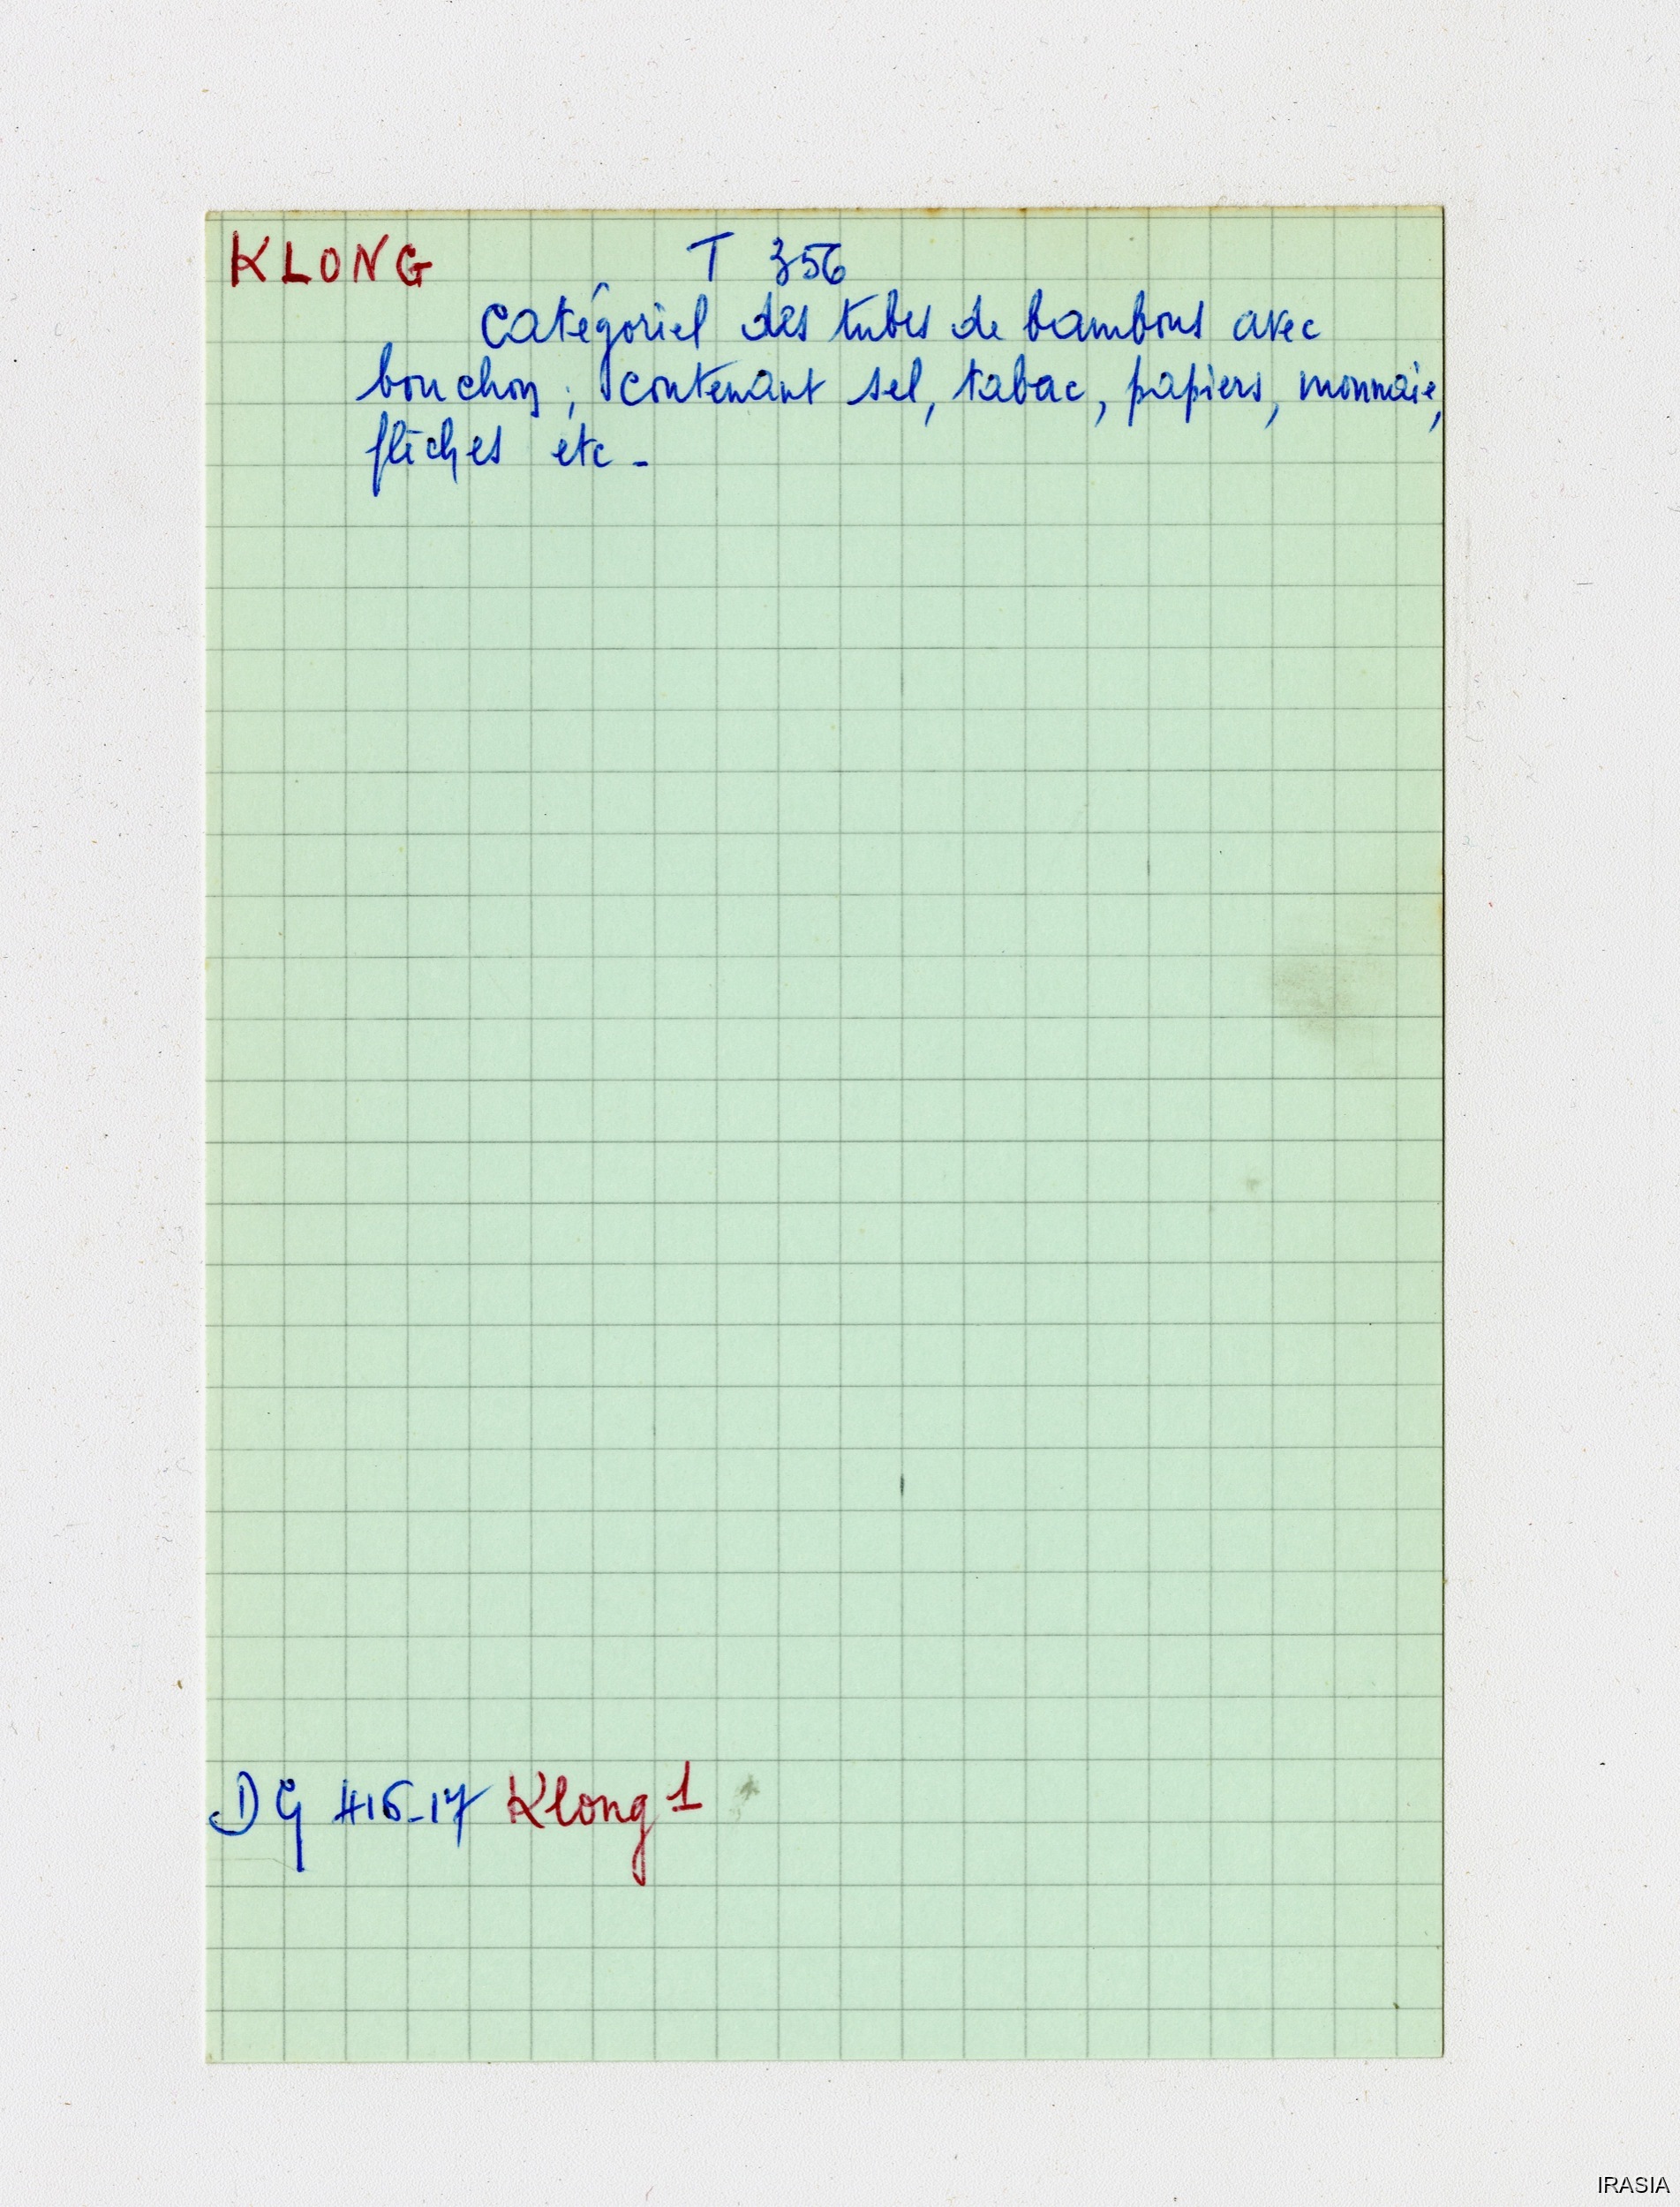 KLONG T 356
catégoriel des tubes de bambous avec
bouchon ; contenant sel, tabac, papiers, monnaie,
flèches etc -
DG 416-17 Klong 1
IRASIA